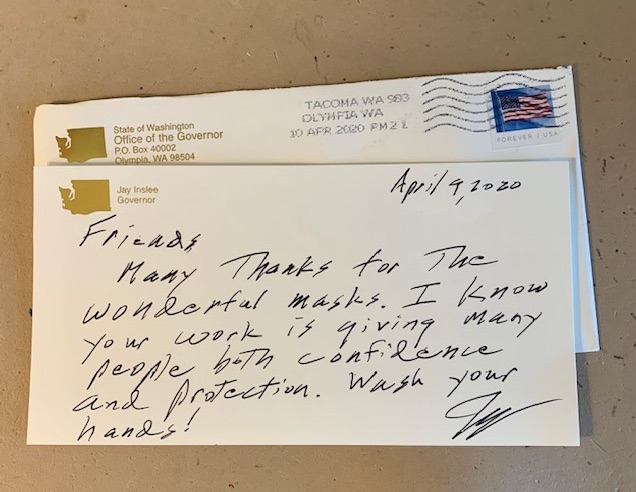 State of Washington
Office of the Governor
P.O. Box 40002
Olympia, WA 98504
TACOMA WA 983
OLYMPIA WA
10 APR 2020 PM 2 L
FOREVER / USA
Jay Inslee
Governor
April 9, 2020
Friends
Many Thanks for The
wonderful masks. I know
your work is giving many
people both confidence
and protection. Wash your
hands!